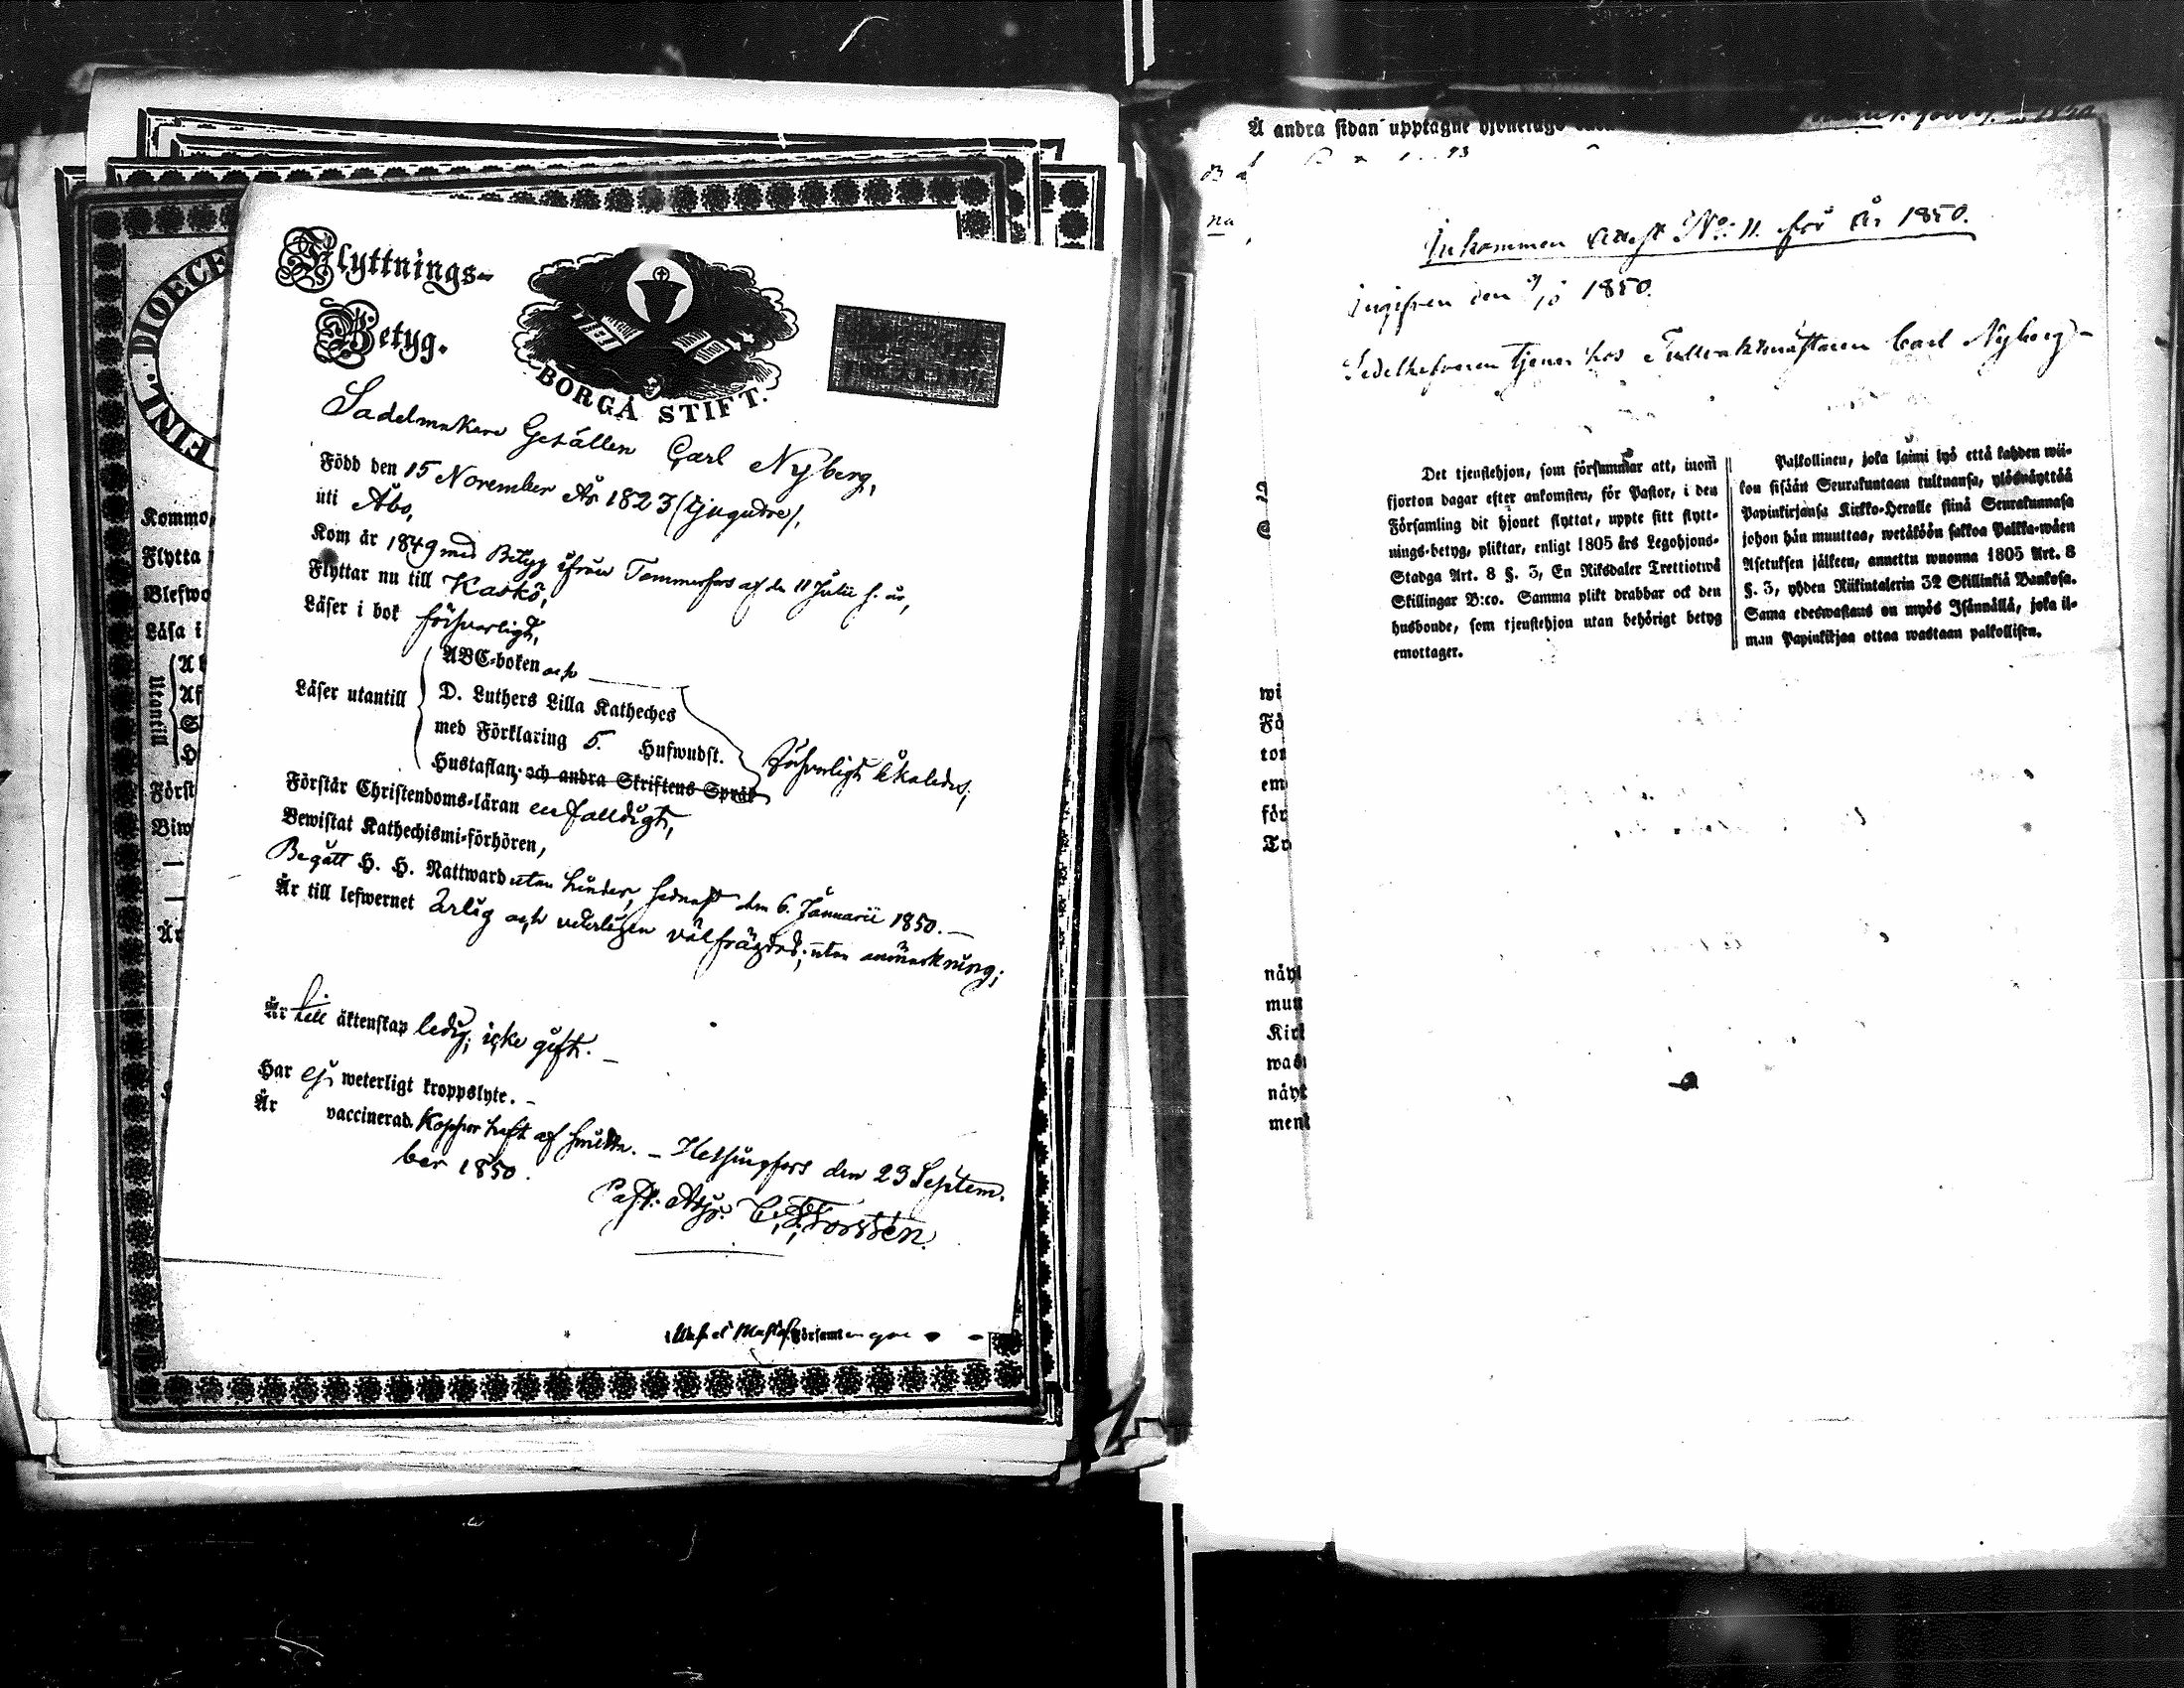 DIOECE
FINL.
Kommo
Flytta
Blefwo
Läsa i
Utantill
Först
Biw
Är
Flyttnings-
Betyg.
BORGÅ STIFT.
Sadelmakare Gesällen Carl Nyberg,
Född den 15 November År 1823 (tjugudre),
uti Åbo,
Kom år 1849 med Betyg ifrån Tammerfors af den 11 Julii s. år,
Flyttar nu till Kaskö,
Läser i bok försvarligt,
ABC-boken och
Läser utantill D. Luthers Lilla Katheches
med Förklaring 5. Hufwudst.
Hustaflan, och andra Skriftens Språk försvarligt
Förstår Christendoms-läran enfalldigt,
Bewistat Kathechismi-förhören,
Begått H. H. Nattward utan hinder, sednast den 6. Januarii 1850.
Är till lefwernet ärlig och veterligen välfrägdad; utan anmärkning;
Är till äktenskap ledig; icke gift.
Har ej weterligt kroppslyte.
Är vaccinerad. Koppor haft af smitta. Helsingfors den 23 Septem-
ber 1850.
Past. Adj. Forssén.
Å andra sidan upptagne
1850
na
Inkommen attest No: 11. för år 1850.
Ingifven den 1850.
Sedelhafvaren tjenar hos Carl Nyberg
Det tjenstehjon, som försummar att, inom
fjorton dagar efter ankomsten, för Pastor, i den
Församling dit hjonet flyttat, uppte sitt flytt-
nings-betyg, pliktar, enligt 1805 års Legohjons-
Stadga Art. 8 §. 3, En Riksdaler Trettiotwå
Skillingar B:co. Samma plikt drabbar ock den
husbonde, som tjenstehjon utan behörigt betyg
emottager.
Palkollinen, joka laimi lyö että kahden wii-
kon sisään Seurakuntaan tultuansa, ylösnäyttää
Papinkirjansa Kirkko-Heralle siinä Seurakunnasa
johon hän muuttaa, wetäköön sakkoa Palkka-wäen
Asetuksen jälkeen, annettu wuonna 1805 Art. 8
§. 3, yhden Riikintalerin 32 Skillinkiä Bankosa.
Sama edeswastaus on myös Isännällä, joka il-
man Papinkirjaa ottaa wastaan palkollisen.
wi
Fö
tor
em
för
Tr
näyt
muu
Kirk
was
näyt
ment